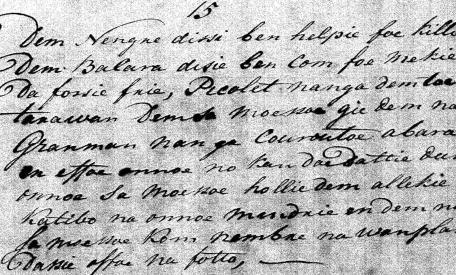 15
Dem Nengre dissi ben helpie foe killi
Dem Balara disie ben com foe mekie
da forsie frie, Picolet nanga dem toe
tarawan Dem sa moessoe gie dem na
Granman nanga Couroutoe abara
en effoe onnoe no kan doe dattie dan
onnoe sa moessoe hollie dem allekie
katibo na onnoe mindrie en dem no
sa moessoe kom nembre na wanplan
Dasie offoe na fotto,